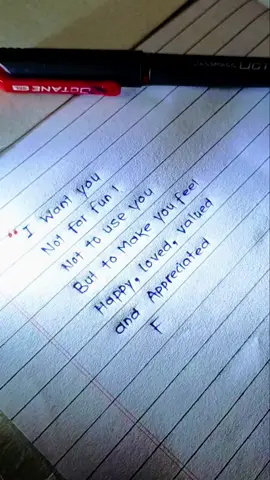 OCTANE
" I Want you
Not for fun!
Not to use you
But to Make you feel
Happy, loved, valued
and Appreciated
F